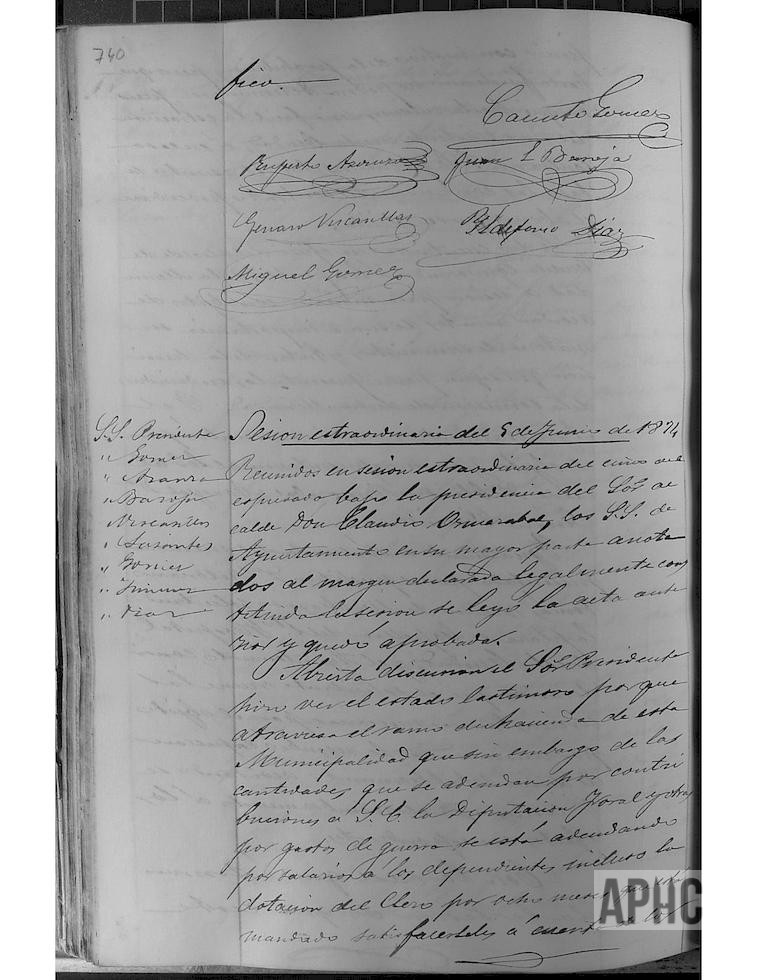 740
fico.
Canuto Gomez
Ruperto Azarraza
Juan L Baroja
Genaro Viscarillas
Yldefonso Diaz
Miguel Gomez
S.S. Presidente
" Gomez
" Azarra
" Baroja
" Viscarillas
" Gomez
" Jimenez
" Diaz
Sesion estraordinaria del 5 de Junio de 1874
Reunidos en sesion estraordinaria del cinco del
espresado bajo la presidencia del Sor. Al
calde Don Claudio Ormazabal, los S.S. de
Ayuntamiento en su mayor parte anota
dos al margen declarada legalmente cons
tituida la sesion se leyó la acta ante
rior y quedó aprobada.
Abierta discusion el Sor. Presidente
hizo ver el estado lastimoso porque
atraviesa el ramo de hacienda de esta
Municipalidad que sin embargo de las
cantidades que se adeudan por contri
buciones a S.E. la Diputacion Foral y otras
por gastos de guerra se está adeudando
por salarios a los dependientes incluso la
dotacion del Clero por ocho meses
mandado satisfacerseles á cuenta de los
APHC